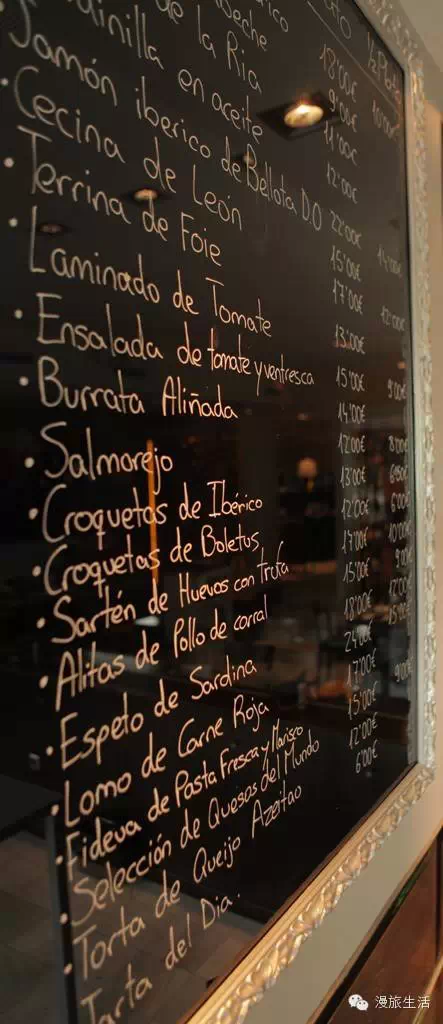 de la Ria
en aceite
Jamón iberico de Bellota D.O
• Cecina de León
• Terrina de Foie
• Laminado de Tomate
• Ensalada de tomate y ventresca
• Burrata Aliñada
• Salmorejo
• Croquetas de Ibérico
• Croquetas de Boletus
• Sartén de Huevos con trufa
• Alitas de Pollo de corral
• Espeto de Sardina
• Lomo de Carne Roja
• Fideua de Pasta Fresca y Marisco
• Selección de Quesos del Mundo
• Torta de Queijo Azeitao
• Tarta del Dia.
1/2
18'00€
9'00€
11'00€
12'00€
22'00€
15'00€
17'00€
13'00€
15'00€
14'00€
12'00€
13'00€
12'00€
15'00€
18'00€
24'00€
17'00€
15'00€
12'00€
6'00€
10'00€
14'00€
12'00€
9'00€
漫旅生活